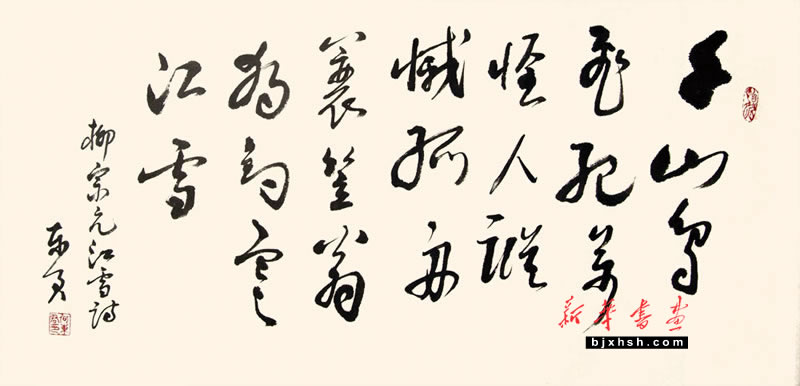 千山鳥
飛絕萬
徑人蹤
滅孤舟
蓑笠翁
獨釣寒
江雪
柳宗元江雪詩
新華書畫
bjxhsh.com